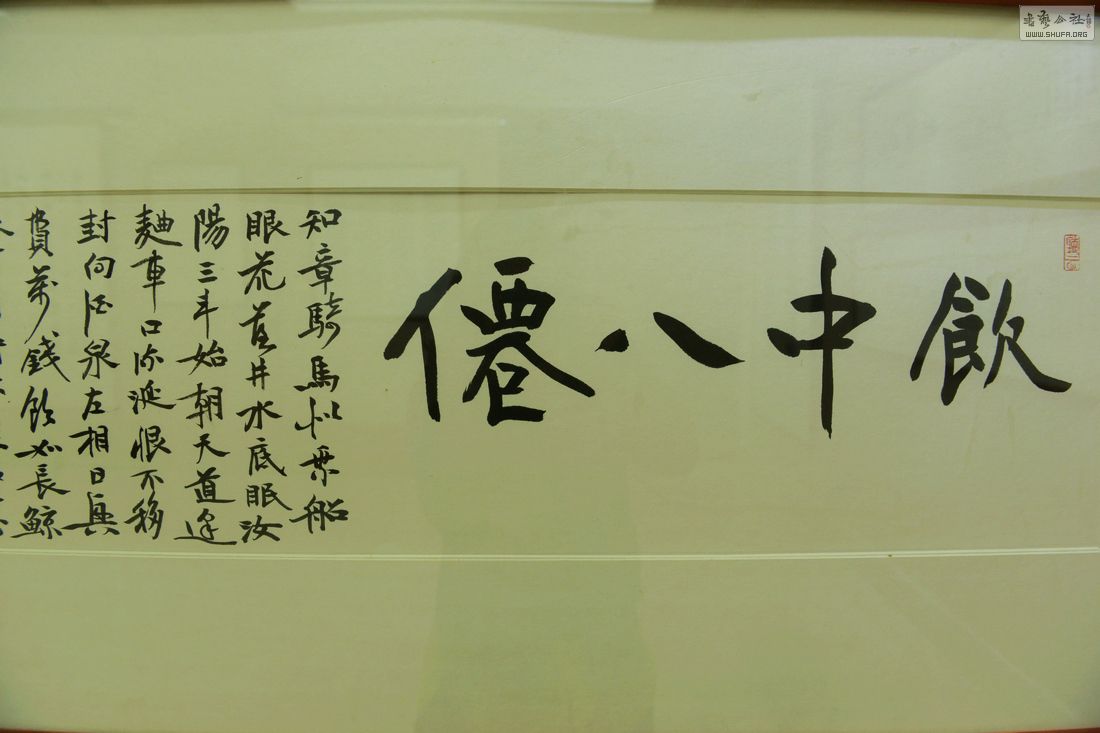 飲中八僊
知章騎馬似乘船
眼花落井水底眠汝
陽三斗始朝天道逢
麯車口流涎恨不移
封向酒泉左相日興
費萬錢飲如長鯨
書藝公社
WWW.SHUFA.ORG